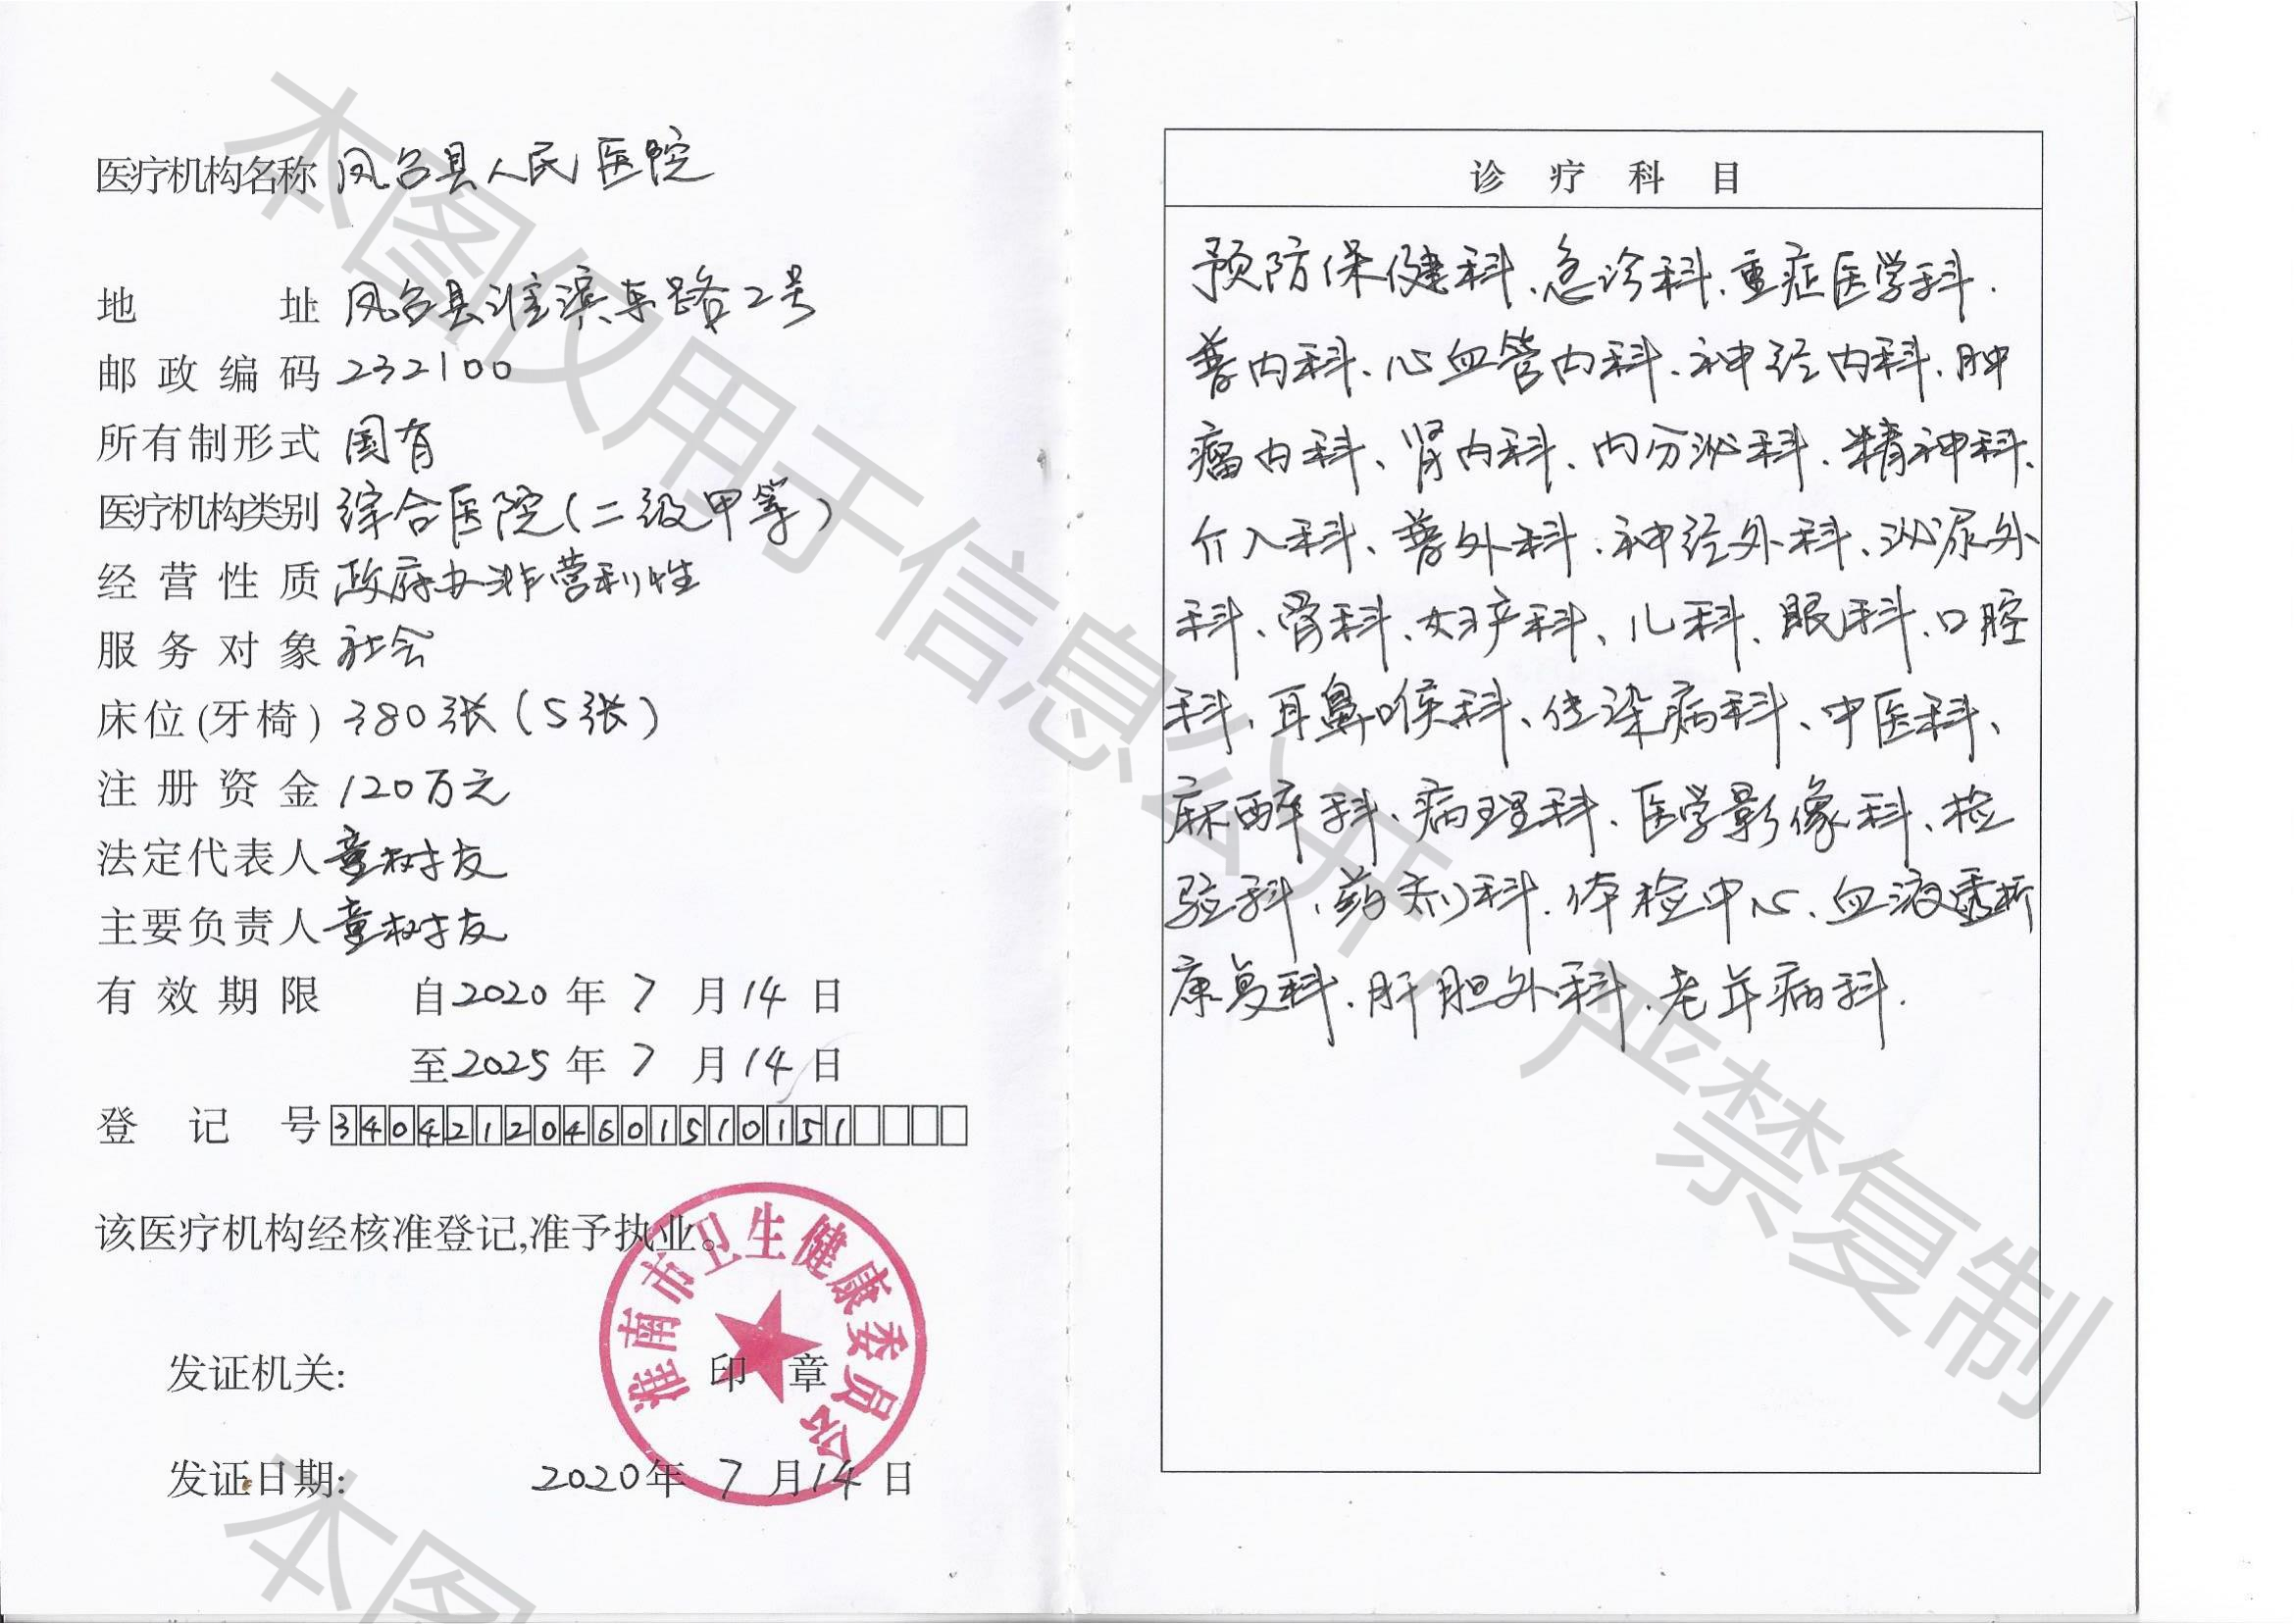 医疗机构名称 凤台县人民医院
地 址 凤台县淮滨东路2号
邮政编码 232100
所有制形式 国有
医疗机构类别 综合医院(二级甲等)
经营性质 政府办非营利性
服务对象 社会
床位(牙椅) 380张(5张)
注册资金 120万元
法定代表人 童树友
主要负责人 童树友
有效期限 自2020年7月14日
至2025年7月14日
登记号 340421204601510151
该医疗机构经核准登记,准予执业。
发证机关: 印章
淮南市卫生健康委员会
发证日期: 2020年7月14日
诊疗科目
预防保健科、急诊科、重症医学科.
普内科、心血管内科、神经内科、肿
瘤内科、肾内科、内分泌科、精神科、
介入科、普外科、神经外科、泌尿外
科、骨科、妇产科、儿科、眼科、口腔
科、耳鼻喉科、传染病科、中医科、
麻醉科、病理科、医学影像科、检
验科、药剂科、体检中心、血液透析
康复科、肝胆外科、老年病科.
本图仅用于信息公开,严禁复制
本图